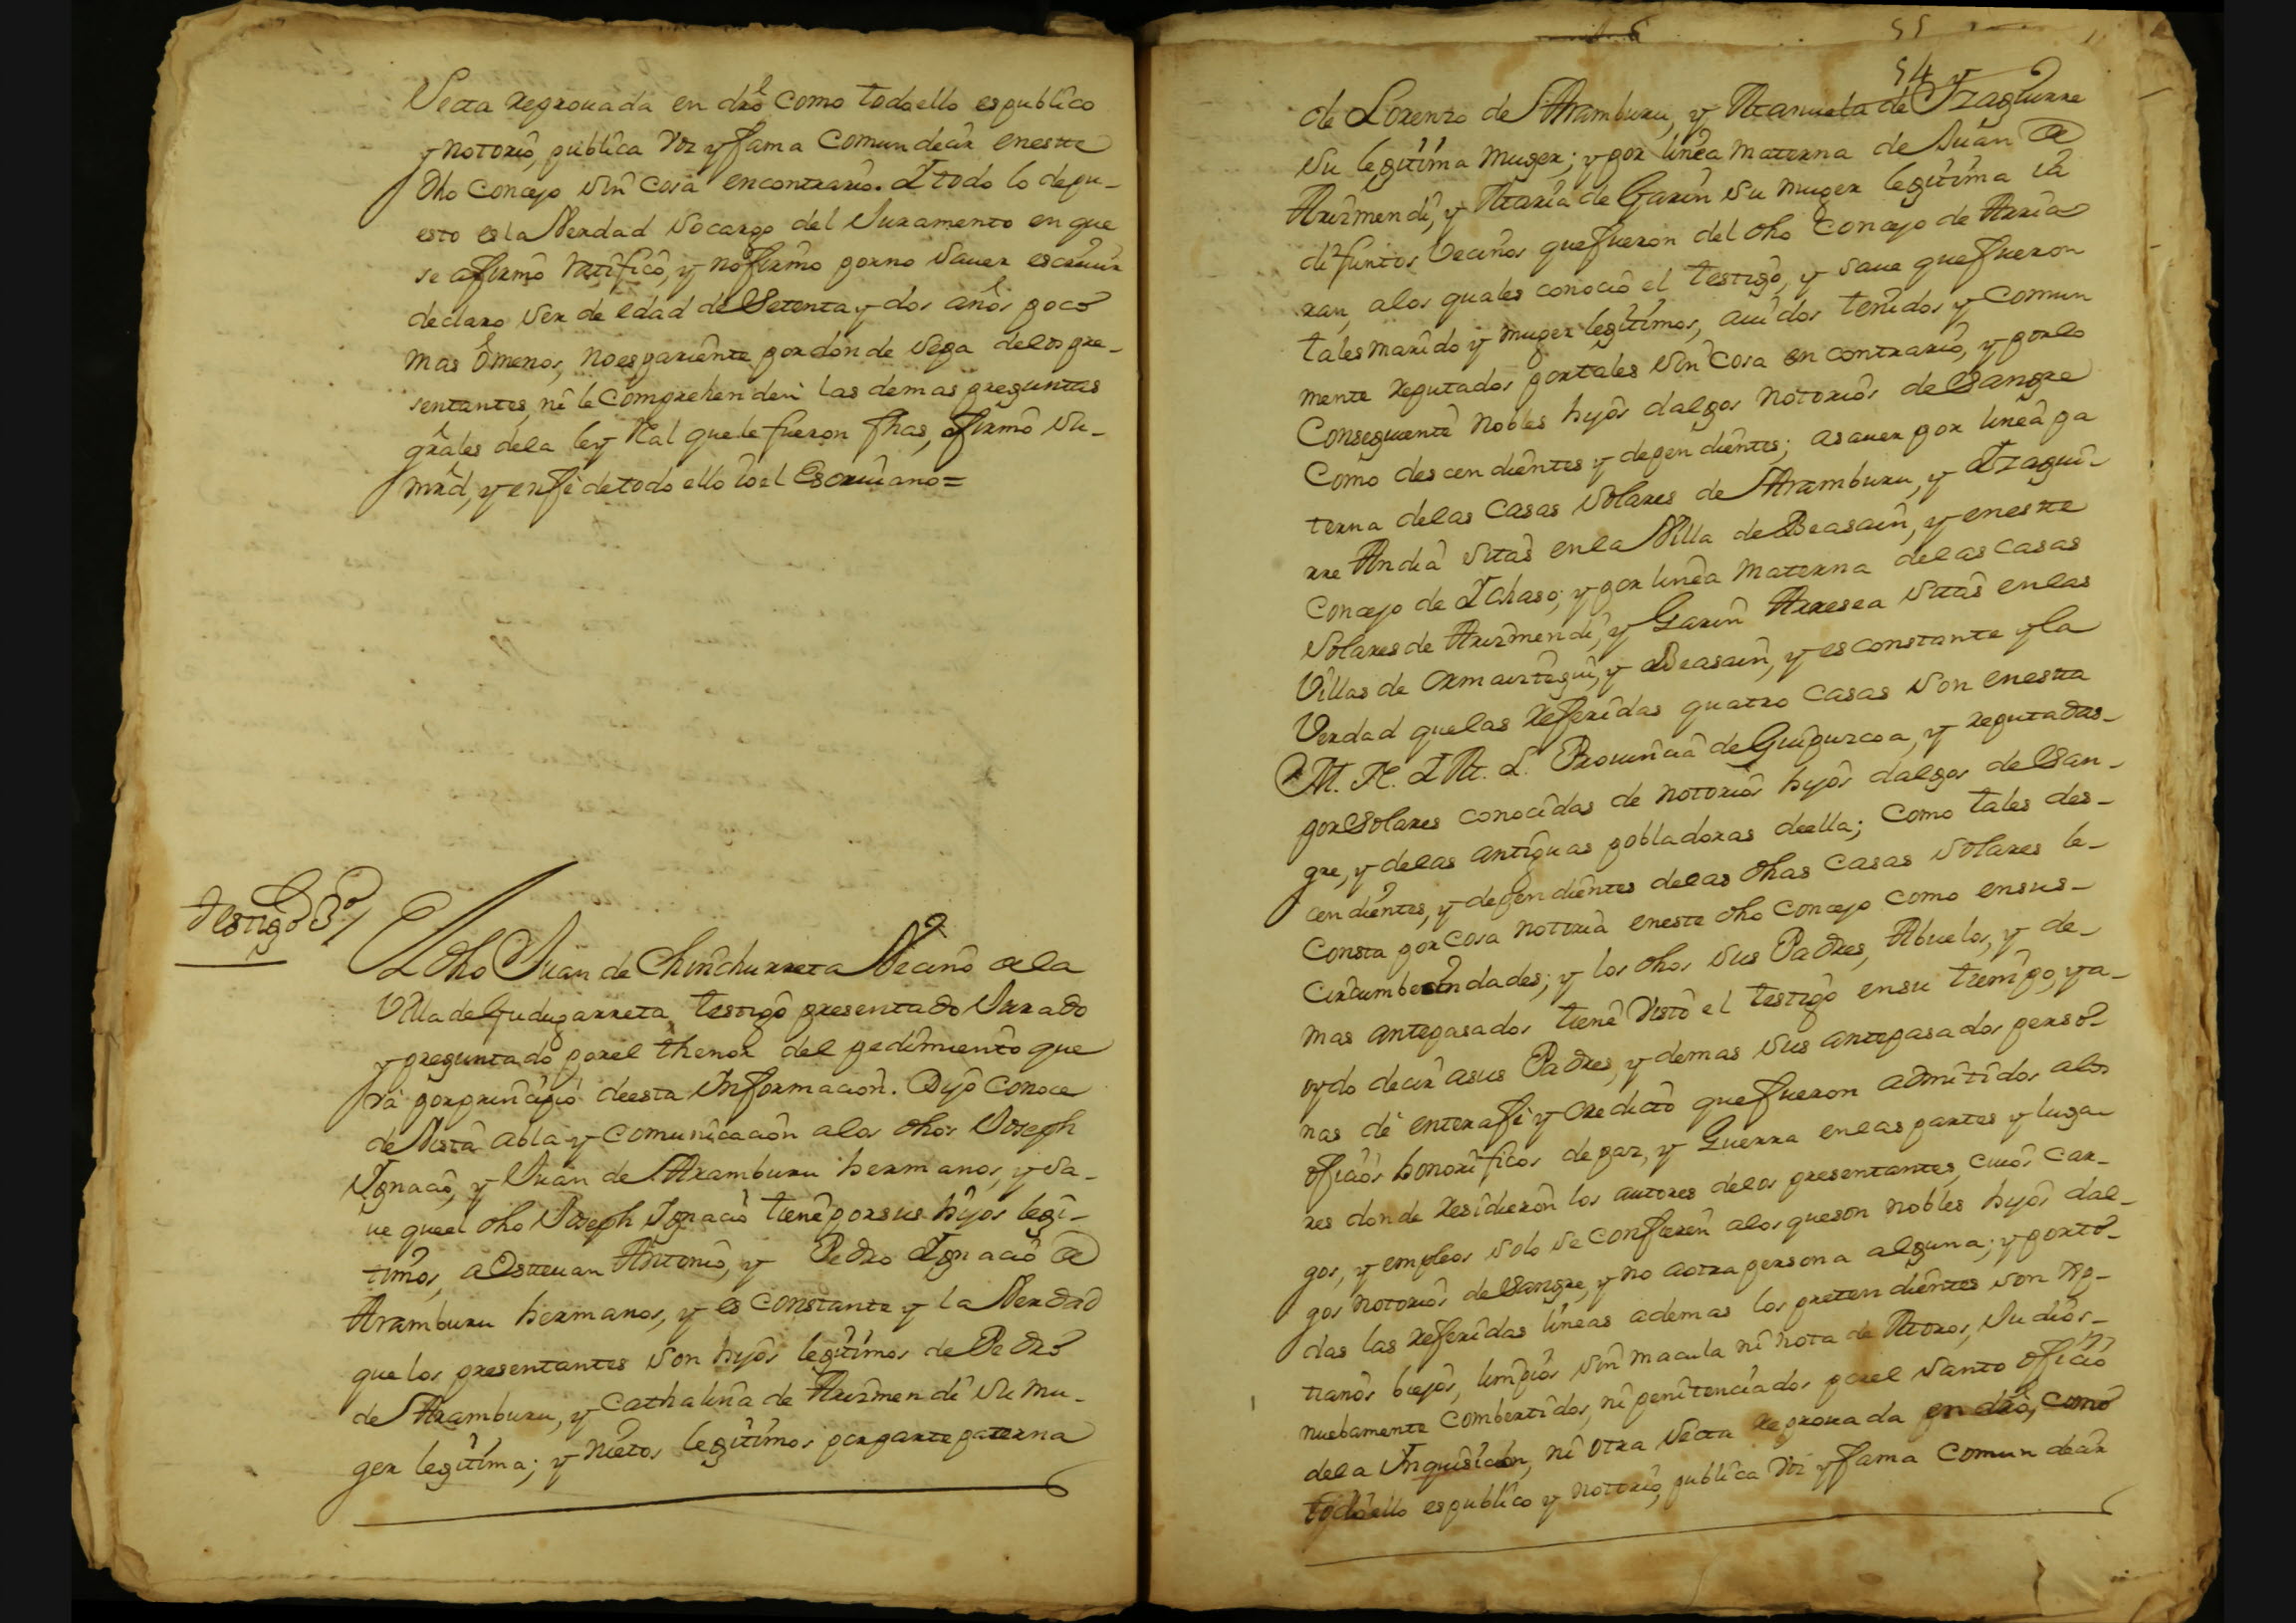 Secta reprouada en dro como todo ello es publico
y notorio, publica voz y fama comun decir en este
dho concejo sin cosa en contrario. I todo lo depu-
esto es la Verdad so cargo del Juramento en que
se afirmò ratificò, y no firmo por no sauer escriuir
declaro ser de edad de Setenta y dos años poco
mas ò menos, no es pariente por donde sepa de los pre-
sentantes, ni le comprehenden las demas preguntas
grales de la ley Real que le fueron fhas, firmò Su
mrd, y en fè de todo ello io el Escriuano=
Testigo 3º
El dho Juan de Chinchurreta Vecino de la
Villa de Gudugarreta, testigo presentado Jurado
y preguntado por el thenor del pedimiento que
và por principio de esta Informacion. Dijo conoce
de Vista abla y comunicacion a los dhos Joseph
Ignacio, y Juan de Aramburu hermanos, y sa-
ue que el dho Joseph Ignacio tiene por sus hijos legi-
timos, a Esteuan Antonio, y Pedro Ignacio de
Aramburu hermanos, y es constante y la Verdad
que los presentantes son hijos legitimos de Pedro
de Aramburu, y Cathalina de Arizmendi su mu-
ger legitima; y nietos legitimos por parte paterna
55
54
de Lorenzo de Aramburu, y Manuela de Izaguirre
su legitima muger; y por linea materna de Juan de
Arizmendi, y Maria de Garin su muger legitima ià
difuntos Vecinos que fueron del dho Concejo de Arria
ran, a los quales conociò el testigo, y saue que fueron
tales marido y muger legitimos, auidos tenidos y comun
mente reputados por tales sin cosa en contrario, y por lo
Conseguiente nobles hijos dalgos notorios de Sangre
Como descendientes y dependientes; a sauer por linea pa
terna de las Casas Solares de Aramburu, y Izagui-
rre Andia sitas en la Villa de Beasain, y en este
Concejo de Ichaso; y por linea materna de las casas
Solares de Arizmendi, y Garin Arresea sitas en las
Villas de Ormaiztegui, y Beasain, y es constante y la
Verdad que las referidas quatro casas son en esta
M. N. I M. L. Prouincia de Guipuzcoa, y reputadas
por Solares conocidas de notorios hijos dalgos de San-
gre, y de las antiguas pobladoras de ella; como tales des-
cendientes, y dependientes de las dhas casas Solares le
Consta por cosa notoria en este dho Concejo como en sus
Circumbecindades; y los dhos sus Padres, Abuelos, y de-
mas antepasados tiene visto el testigo en su tiempo, y a
oydo decir a sus Padres, y demas sus antepasados perso-
nas de entera fè y credito que fueron admitidos a los
oficios honorificos de paz, y Guerra en las partes y luga
res donde residieron los autores de los presentantes, cuios car-
gos, y empleos solo se confieren a los que son nobles hijos dal-
gos notorios de Sangre, y no a otra persona alguna; y por to-
das las referidas lineas ademas los pretendientes son Xp-
tianos biejos, limpios sin macula ni nota de Moros, Judios
nuebamente combertidos, ni penitenciados por el Santo oficio
de la Inquisicion, ni otra secta reprouada en dro, como
todo ello es publico y notorio, publica voz y fama comun decir